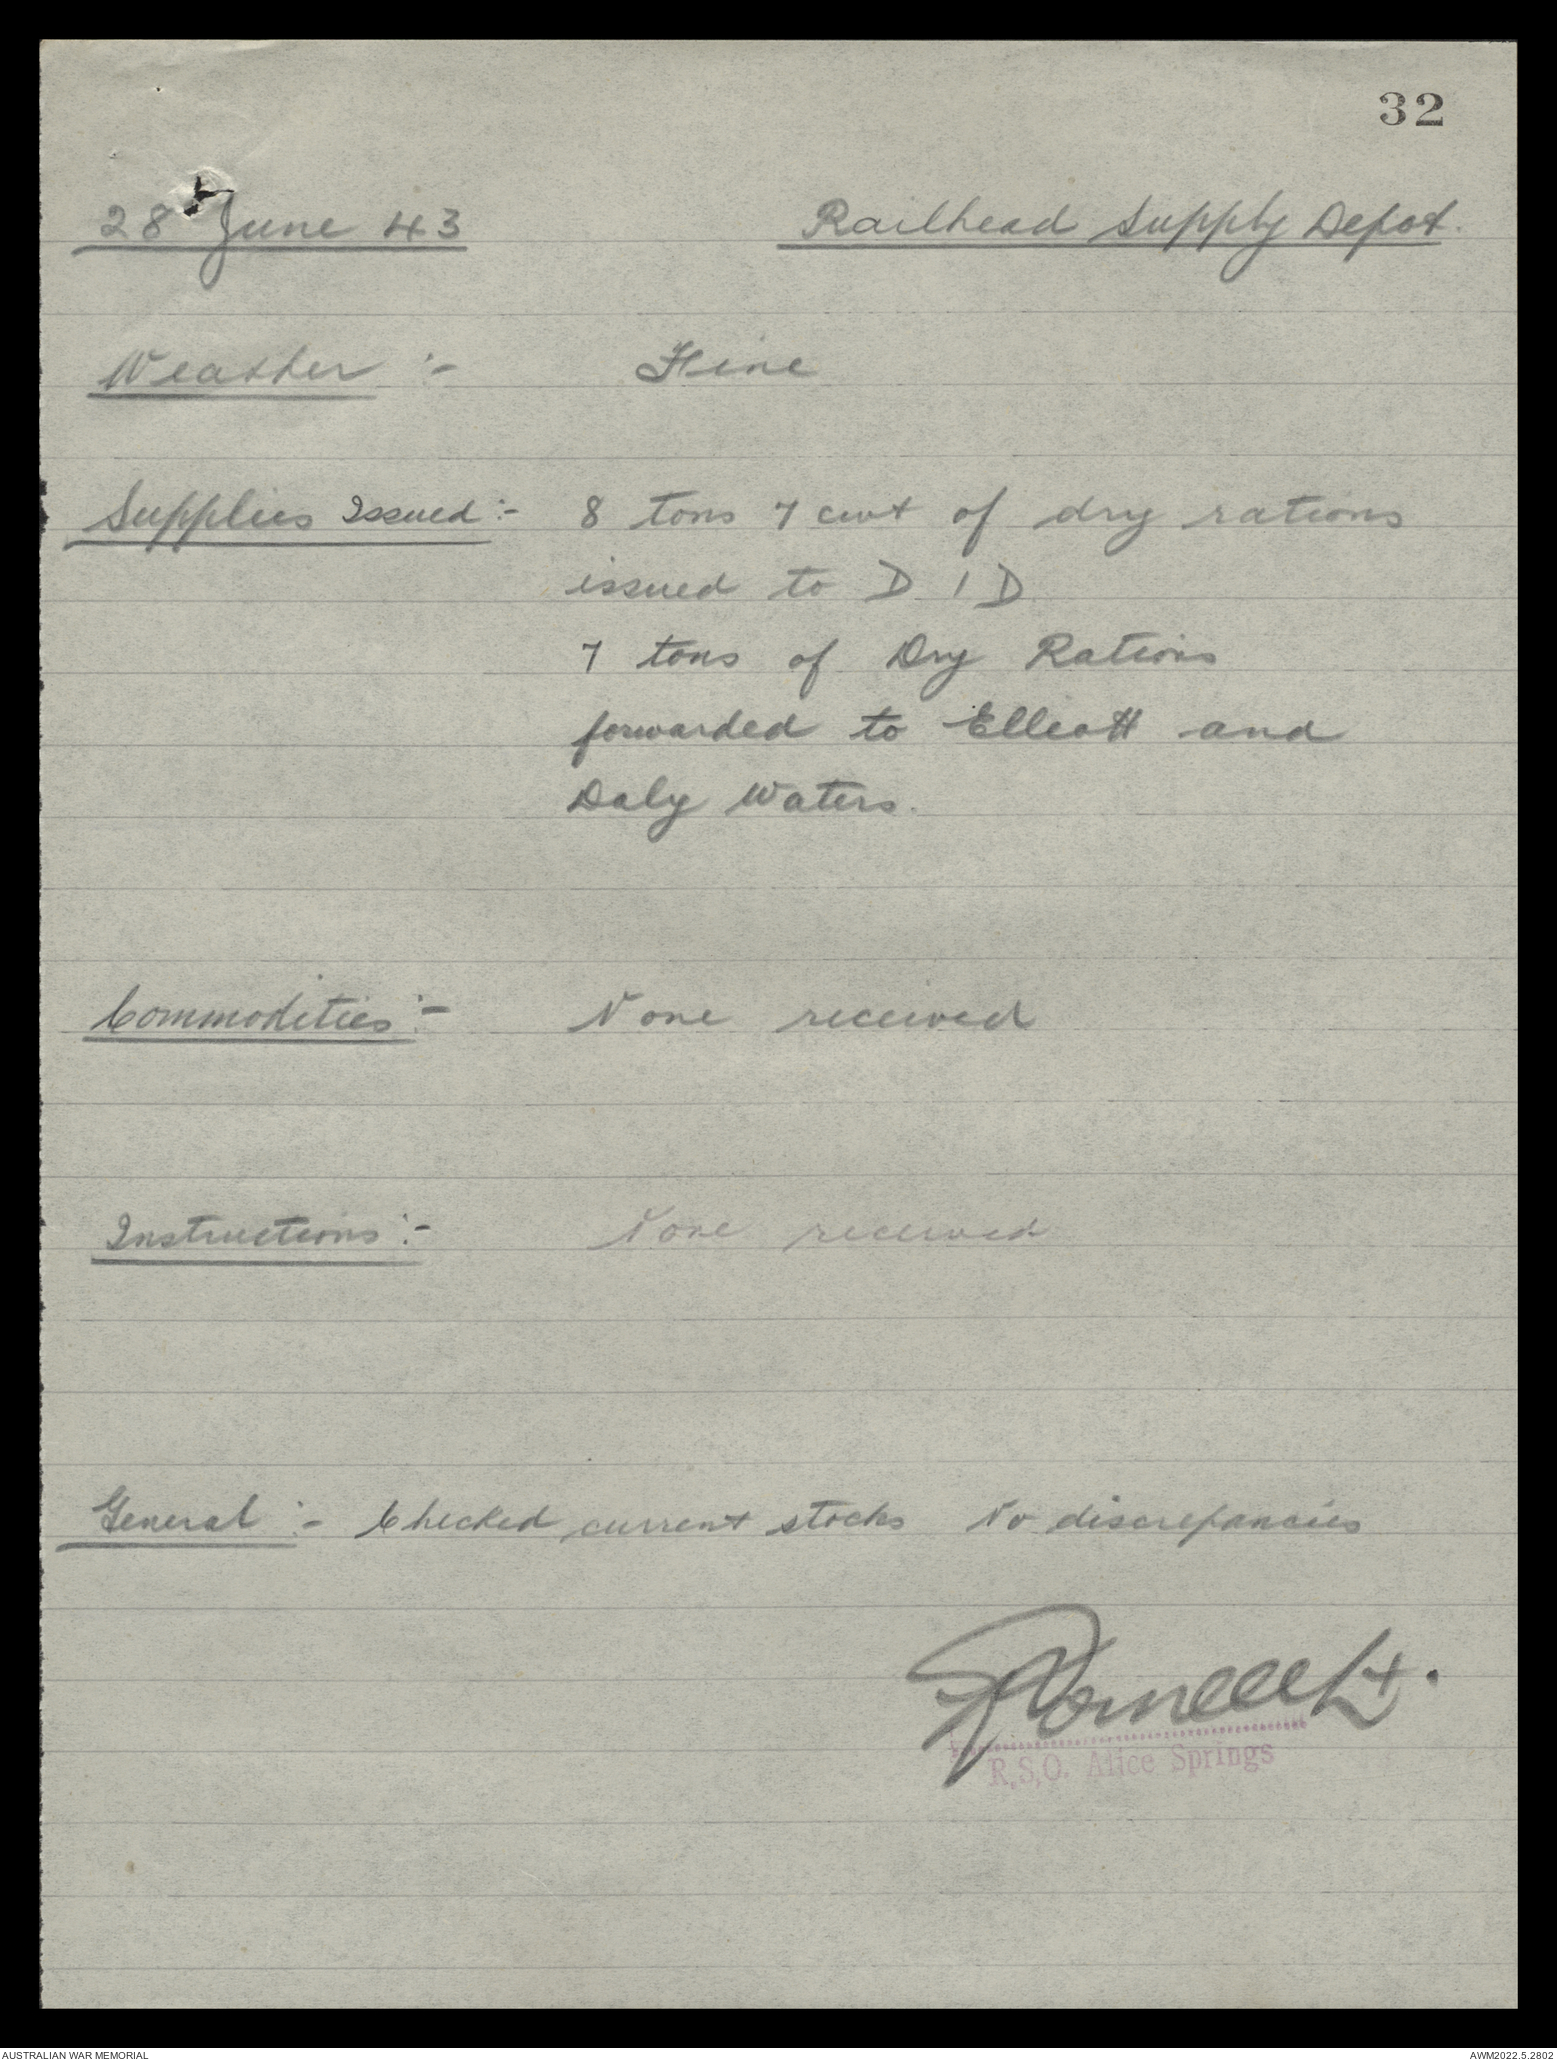 32
28 June 43 Railhead Supply Depot.
Weather :- Fine
Supplies Issued :- 8 tons 7 cwt of dry rations
issued to D I D
7 tons of Dry Rations
forwarded to Elliott and
Daly Waters.
Commodities :- None received
Instructions :- None received
General :- Checked current stocks No discrepancies
Lt.
R.S.O. Alice Springs
AUSTRALIAN WAR MEMORIAL AWM2022.5.2802